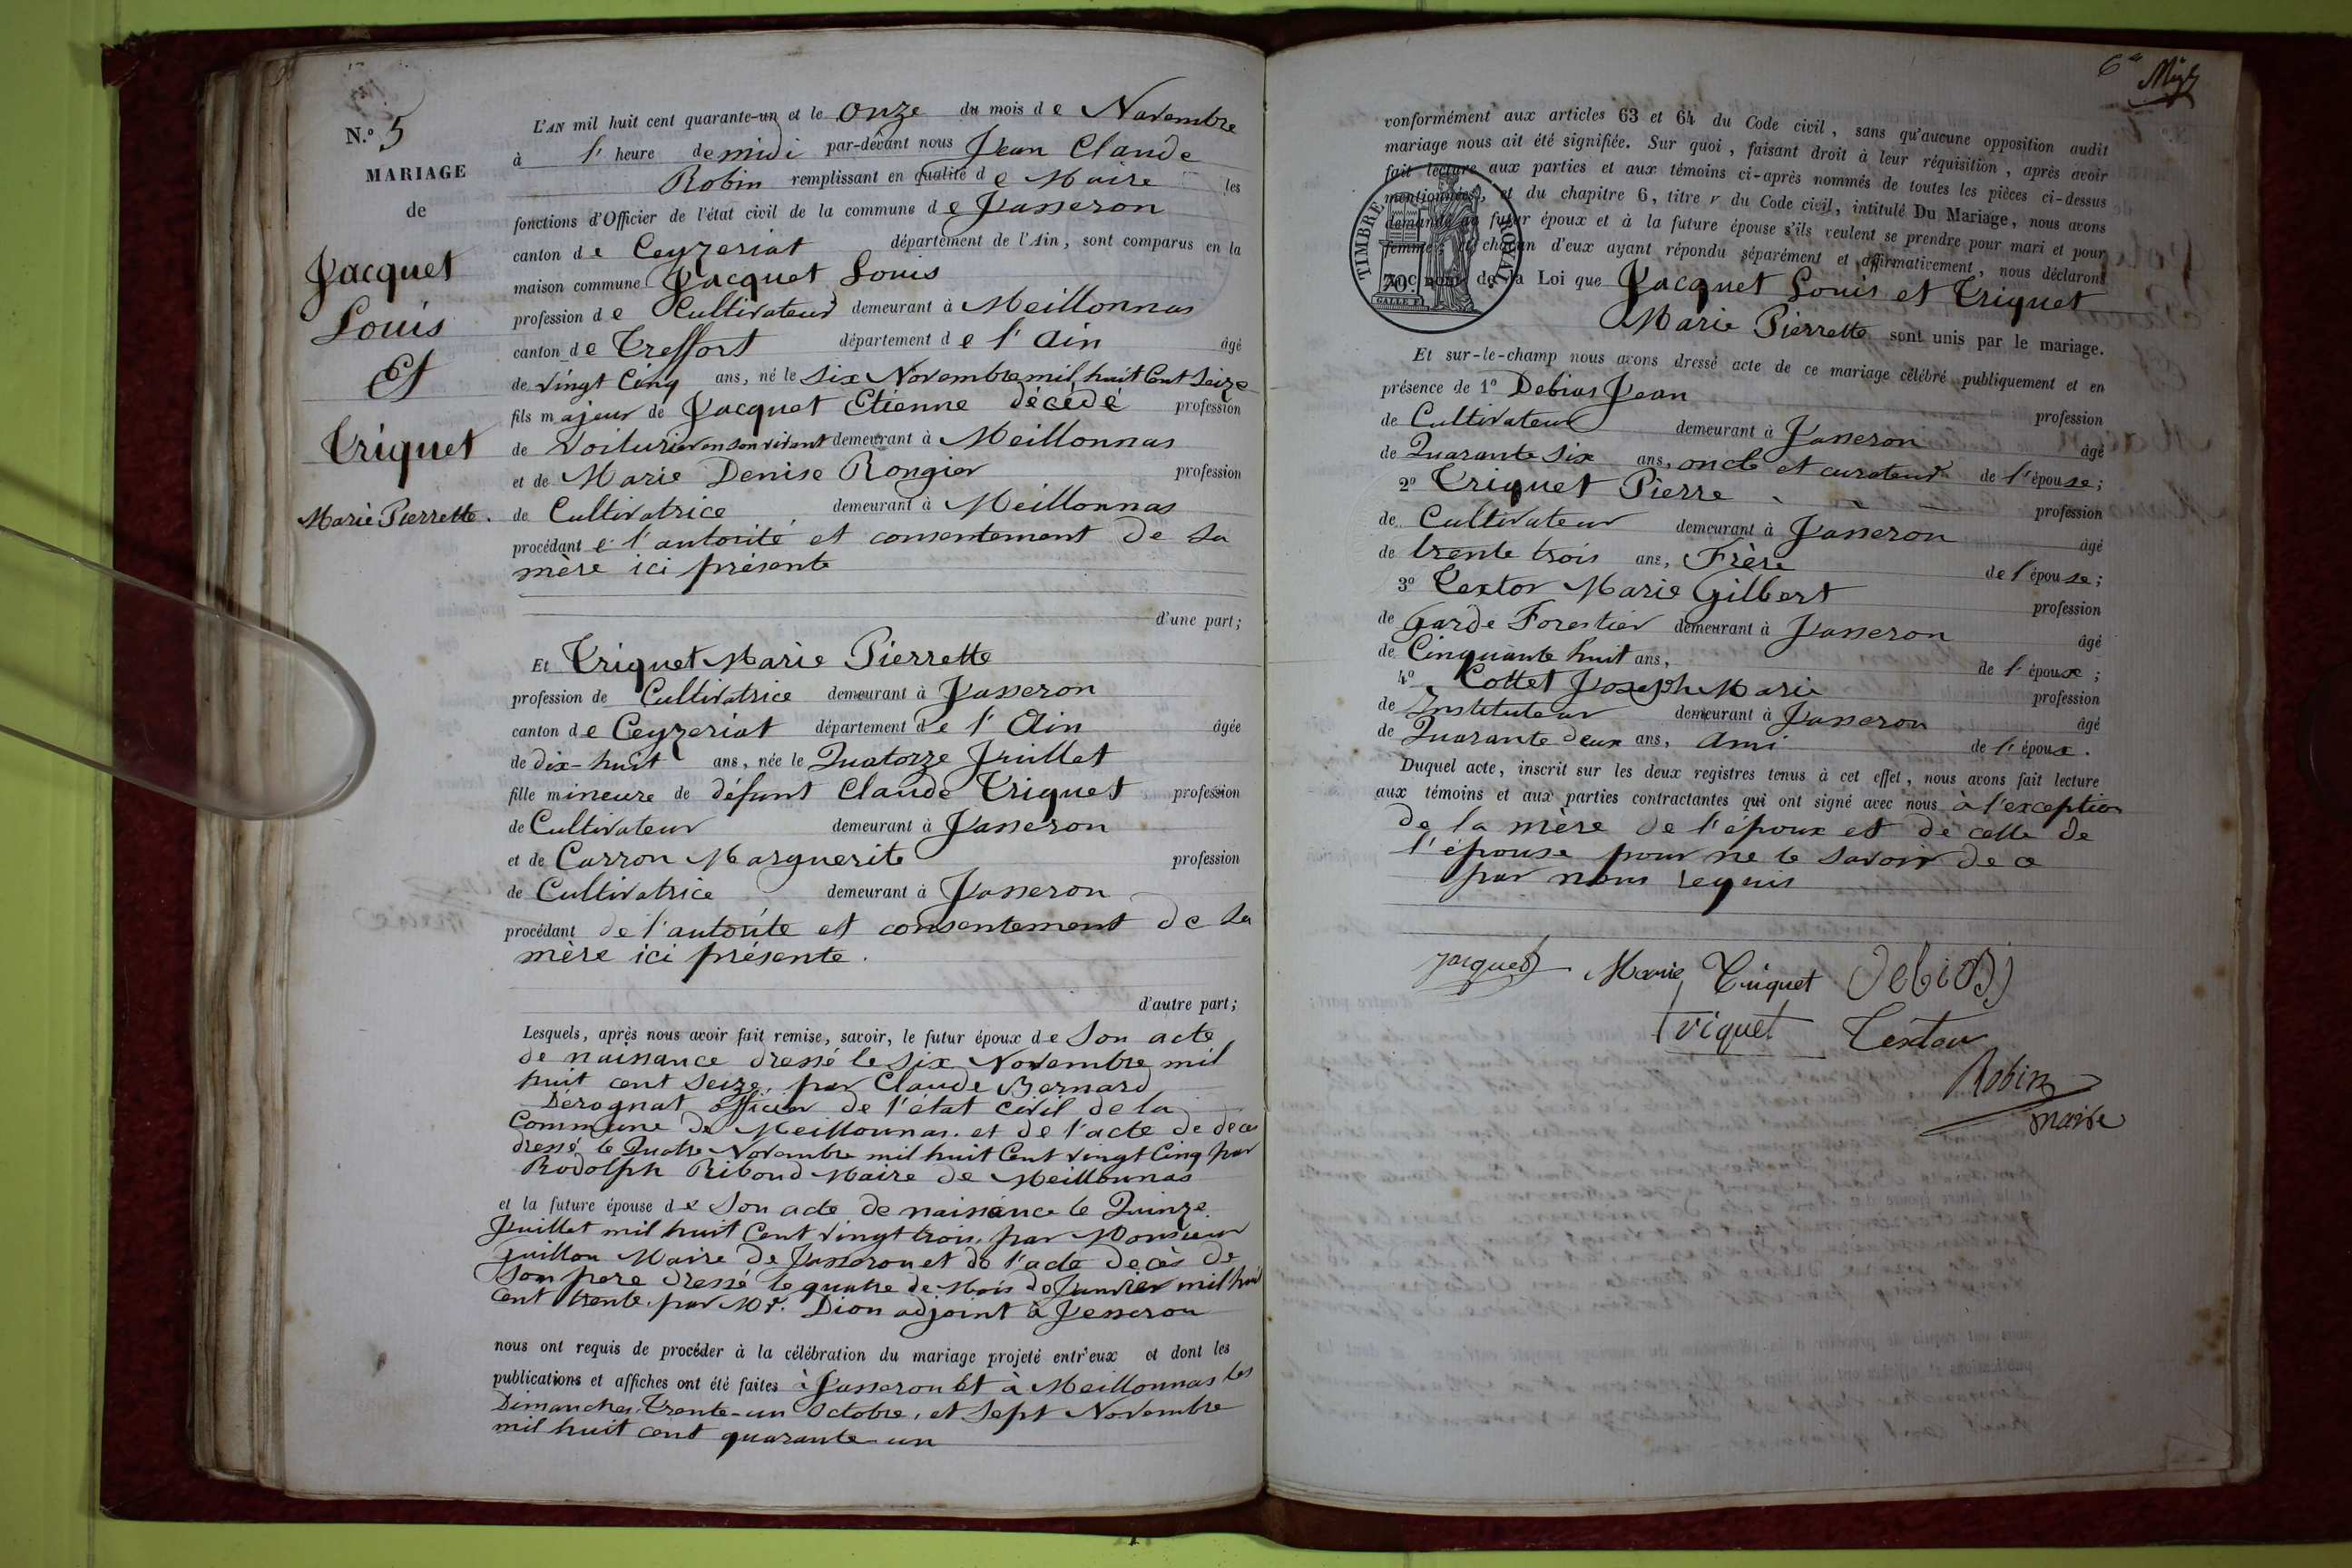 N.o 5
MARIAGE
de
Jacquet
Louis
Et
Triquet
Marie Pierrette.
L'AN mil huit cent quarante-un et le onze du mois de Novembre
à l'heure de midi par-devant nous Jean Claude
Robin remplissant en qualité de Maire les
fonctions d'Officier de l'état civil de la commune de Jasseron
canton de Ceyzeriat département de l'Ain, sont comparus en la
maison commune Jacquet Louis
profession de Cultivateur demeurant à Meillonnas
canton de Treffort département de l'Ain âgé
de vingt Cinq ans, né le six Novembre mil huit Cent Seize
fils majeur de Jacquet Etienne décédé profession
de voiturier en son vivant demeurant à Meillonnas
et de Marie Denise Rongier profession
de Cultivatrice demeurant à Meillonnas
procédant de l'autorité et consentement de sa
mère ici présente
d'une part;
Et Triquet Marie Pierrette
profession de Cultivatrice demeurant à Jasseron
canton de Ceyzeriat département de l'Ain âgée
de dix-huit ans, née le Quatorze Juillet
fille mineure de défunt Claude Triquet profession
de Cultivateur demeurant à Jasseron
et de Carron Marguerite profession
de Cultivatrice demeurant à Jasseron
procédant de l'autorité et consentement de sa
mère ici présente.
d'autre part;
Lesquels, après nous avoir fait remise, savoir, le futur époux de Son acte
de naissance dressé le six Novembre mil
huit cent seize, par Claude Bernard
Derognat officier de l'état civil de la
Commune de Meillonnas. et de l'acte de déces
dressé le Quatre Novembre mil huit Cent vingt Cinq par
Rodolph Riboud Maire de Meillonnas
et la future épouse de Son acte de naissance le Quinze
Juillet mil huit Cent vingt trois, par Monsieur
guillon Maire de Jasseron et de l'acte decès de
son pere dressé le quatre de Mois de Janvier mil huit
cent trente, par Mr. Dion adjoint à Jesseron
nous ont requis de procéder à la célébration du mariage projeté entr'eux et dont les
publications et affiches ont été faites à Jasseron Et à Meillonnas les
Dimanches, Trente-un Octobre, et Sept Novembre
mil huit cent quarante-un
conformément aux articles 63 et 64 du Code civil, sans qu'aucune opposition audit
mariage nous ait été signifiée. Sur quoi, faisant droit à leur réquisition, après avoir
fait lecture aux parties et aux témoins ci-après nommés de toutes les pièces ci-dessus
mentionnées, et du chapitre 6, titre V du Code civil, intitulé Du Mariage, nous avons
demandé au futur époux et à la future épouse s'ils veulent se prendre pour mari et pour
femme; et chacun d'eux ayant répondu séparément et affirmativement, nous déclarons
au nom de la Loi que Jacquet Louis et Triquet
Marie Pierrette sont unis par le mariage.
TIMBRE ROYAL
70c
Et sur-le-champ nous avons dressé acte de ce mariage célébré publiquement et en
présence de 1o Debias Jean
profession
de Cultivateur demeurant à Jasseron âgé
de Quarante six ans, oncle et curateur de l'épouse;
2o Triquet Pierre profession
de Cultivateur demeurant à Jasseron âgé
de trente trois ans, Frère de l'épouse;
3o Textor Marie Gilbert profession
de Garde Forestier demeurant à Jasseron âgé
de Cinquante huit ans, de l'époux;
4o Cottet Joseph Marie profession
de Instituteur demeurant à Jasseron âgé
de Quarante deux ans, Ami de l'époux.
Duquel acte, inscrit sur les deux registres tenus à cet effet, nous avons fait lecture
aux témoins et aux parties contractantes qui ont signé avec nous à l'exception
de la mère de l'époux et de celle de
l'épouse pour ne le savoir de ce
par nous requis
jacquet Marie Triquet Debias J
Triquet Textor
Robin
maire